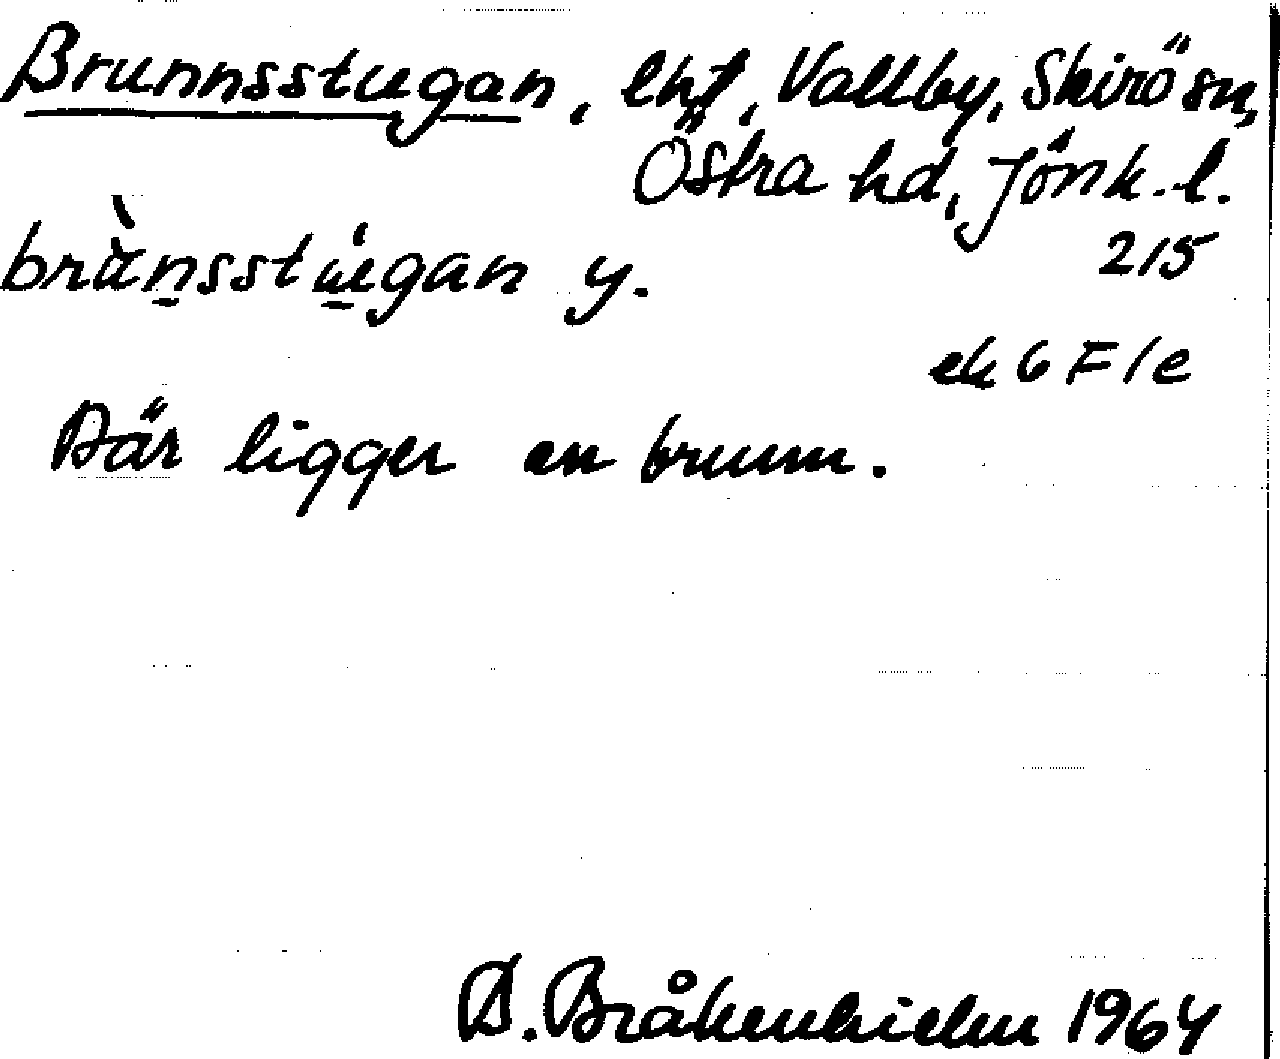 Brunnsstugan, lht, Vallby, Skirö sn,
Östra hd, Jönk. l.
brùnsstúgan y. 215
ek 6 F 1 e
Där ligger en brunn.
D. Bråkenhielm 1964